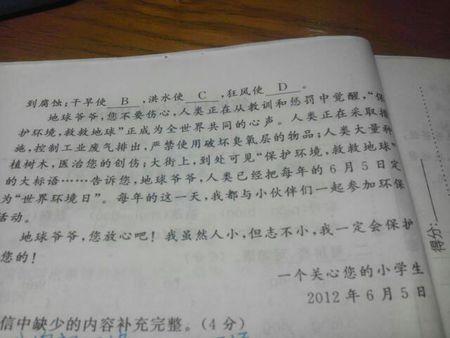 到腐蚀;干旱使 B ,洪水使 C ,狂风使 D 。
地球爷爷,您不要伤心,人类正在从教训和惩罚中觉醒,“保
护环境,救救地球”正成为全世界共同的心声。人类正在采取措
施,控制工业废气排出,严禁使用破坏臭氧层的物品;人类大量种
植树木,医治您的创伤;大街上,到处可见“保护环境,救救地球”
的大标语……告诉您,地球爷爷,人类已经把每年的6月5日定
为“世界环境日”。每年的这一天,我都与小伙伴们一起参加环保
活动。
地球爷爷,您放心吧!我虽然人小,但志不小,我一定会保护
您的!
一个关心您的小学生
2012年6月5日
信中缺少的内容补充完整。(4分)
得分: